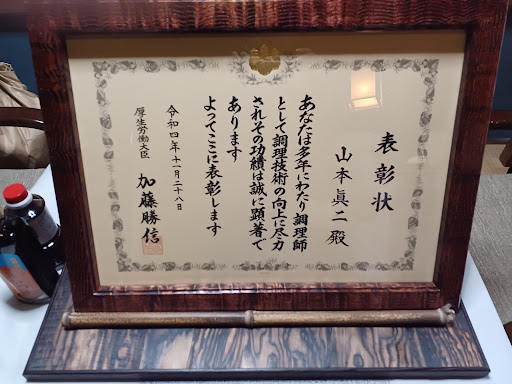 表彰状
山本眞二殿
あなたは多年にわたり調理師
として調理技術の向上に尽力
されその功績は誠に顕著で
あります
よってここに表彰します
令和四年十一月二十八日
厚生労働大臣
加藤勝信